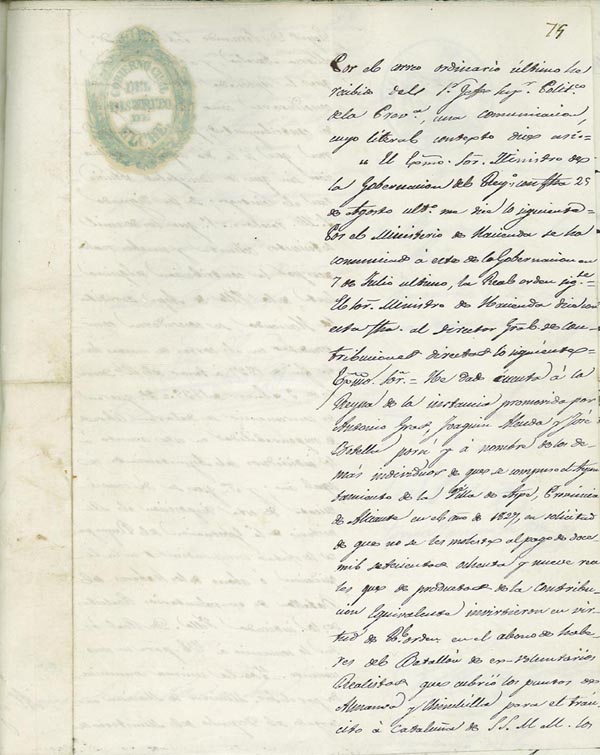 75
GOBIERNO CIVIL
DEL
DISTRITO
DE
ELCHE
Por el correo ordinario último he
recibido del Sr. Jefe Supr. Politco
de la Provª, una comunicacion,
cuyo literal contexto dice asi=
" El Exmo. Sor. Ministro de
la Gobernacion del Reyno con fha 25
de Agosto ultº me dice lo siguiente=
Por el Ministerio de Hacienda se ha
comunicado á este de la Gobernacion en
7 de Julio ultimo, la Real orden sigte=
El Sor. Ministro de Hacienda dice con
esta fha. al director Gral. de Con
tribuciones directas lo siguiente=
Exmo. Sor.= He dado cuenta á la
Reyna de la instancia promovida por
Antonio Gras, Joaquin y José
Botella por sí y á nombre de los de
más individuos de que se compuso el Ayun
tamiento de la Villa de Aspe, Provincia
de Alicante en el año de 1827, en solicitud
de que no se les moleste al pago de doce
mil setecientos ochenta y nueve rea
les que de productos de la Contribu
ción Equivalente invirtieron en vir
tud de Rl. orden, en el abono de habe
res del Batallón de ex-voluntarios
Realistas que cubrió los puntos de
Almansa y Minilla para el trán
sito á Cataluña de SS. MM. los